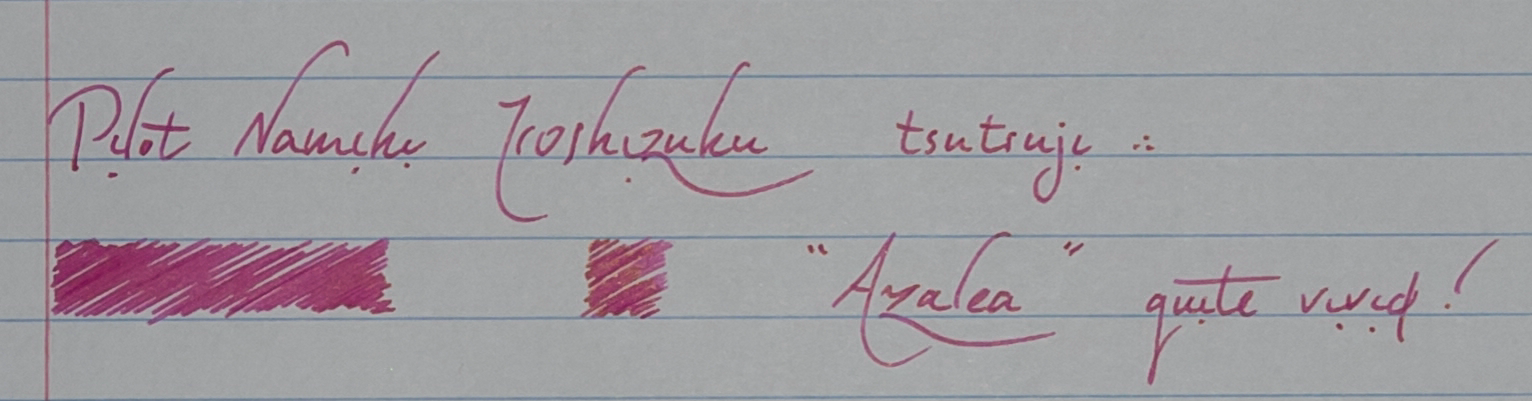 Pilot Namiki Iroshizuku tsutsuji ∴
"Azalea" quite vivid!